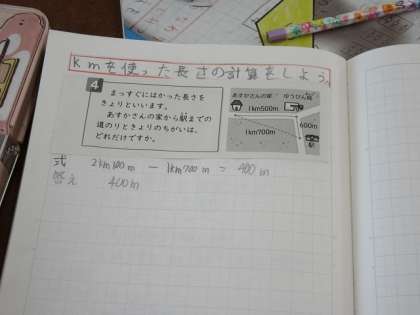 kmを使った長さの計算をしよう。
4
まっすぐにはかった長さを
きょりといいます。
あすかさんの家から駅までの
道のりときょりのちがいは、
どれだけですか。
あすかさんの家
ゆうびん局
1km500m
600m
1km700m
駅
式 2km100m − 1km700m = 400m
答え 400m